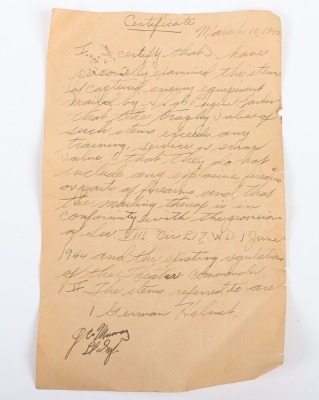 Certificate
March 10, 1945
I certify that I have
personally examined the items
of captured enemy equipment
mailed by S/Sgt Eugene
that the trophy value of
such items exceeds any
training, service or scrap
value, that they do not
include any explosives, firearms
or parts of firearms and that
the mailing thereof is in
conformity with the provisions
of Sec. VIII Cir 217, WD 1 June
1944 and the existing regulations
of the Theater Commander.
II The items referred to are
1 German Helmet.
J C Murray
Lt Inf